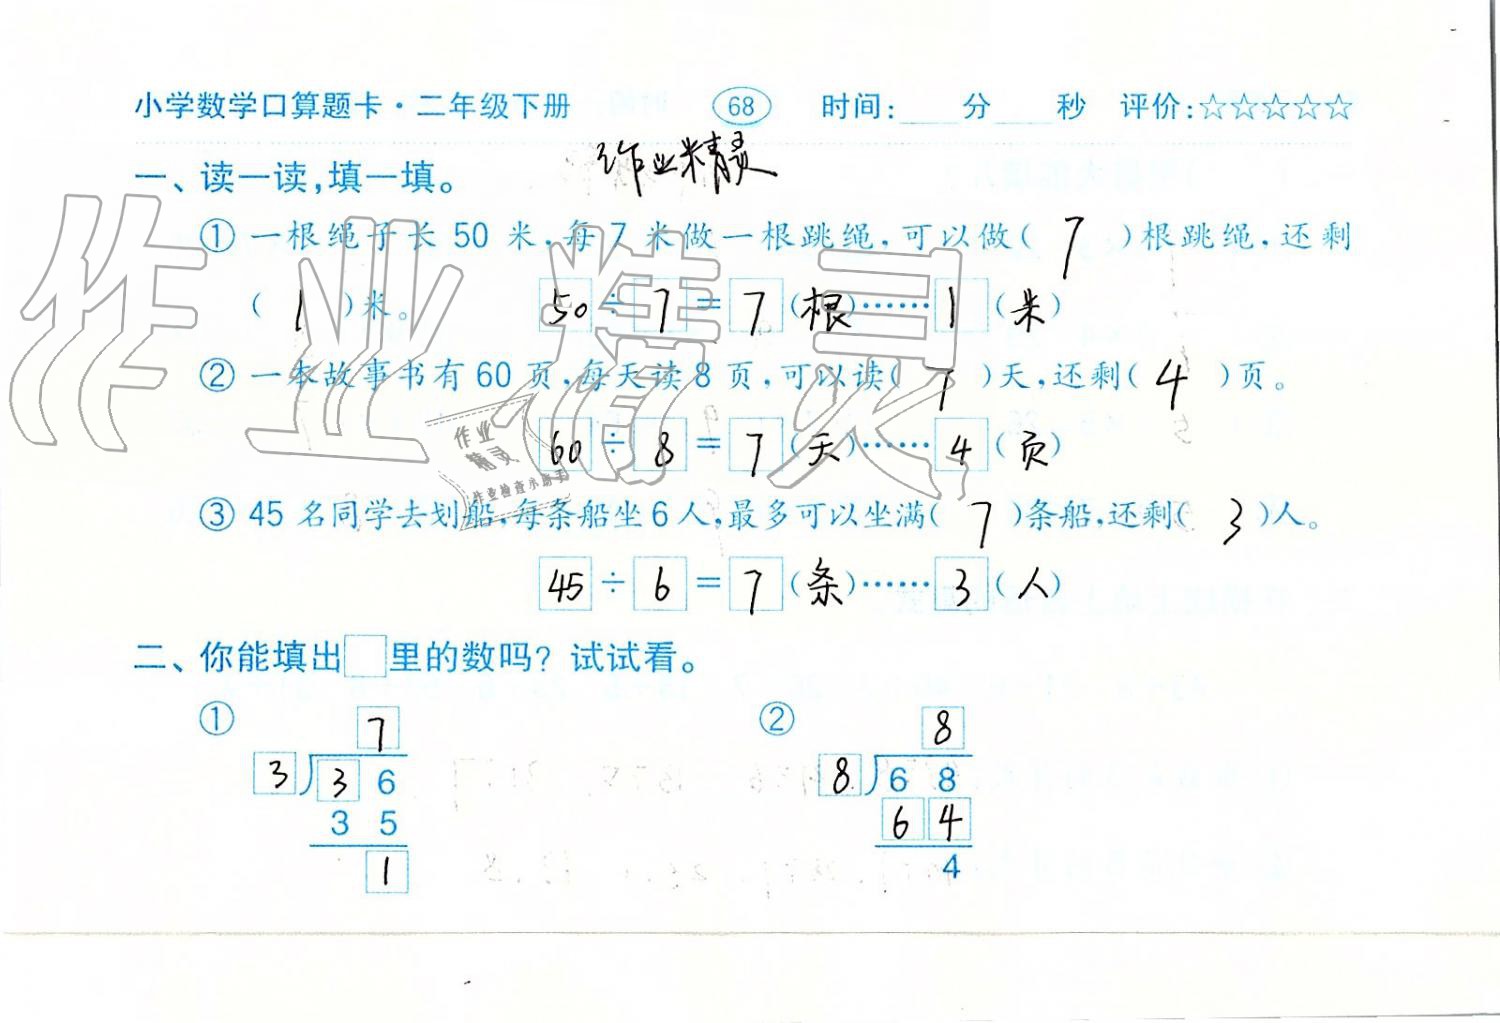 小学数学口算题卡·二年级下册 68 时间:____分____秒 评价:☆☆☆☆☆
作业精灵
一、读一读,填一填。
① 一根绳子长 50 米,每 7 米做一根跳绳,可以做( 7 )根跳绳,还剩
( 1 )米。 50 ÷ 7 = 7 (根)…… 1 (米)
② 一本故事书有 60 页,每天读 8 页,可以读( 7 )天,还剩( 4 )页。
60 ÷ 8 = 7 (天)…… 4 (页)
③ 45 名同学去划船,每条船坐 6 人,最多可以坐满( 7 )条船,还剩( 3 )人。
45 ÷ 6 = 7 (条)…… 3 (人)
二、你能填出□里的数吗? 试试看。
① ②
7 8
3 3 6 8 6 8
3 5 6 4
1 4
作业精灵
作业
精灵
作业检查小助手